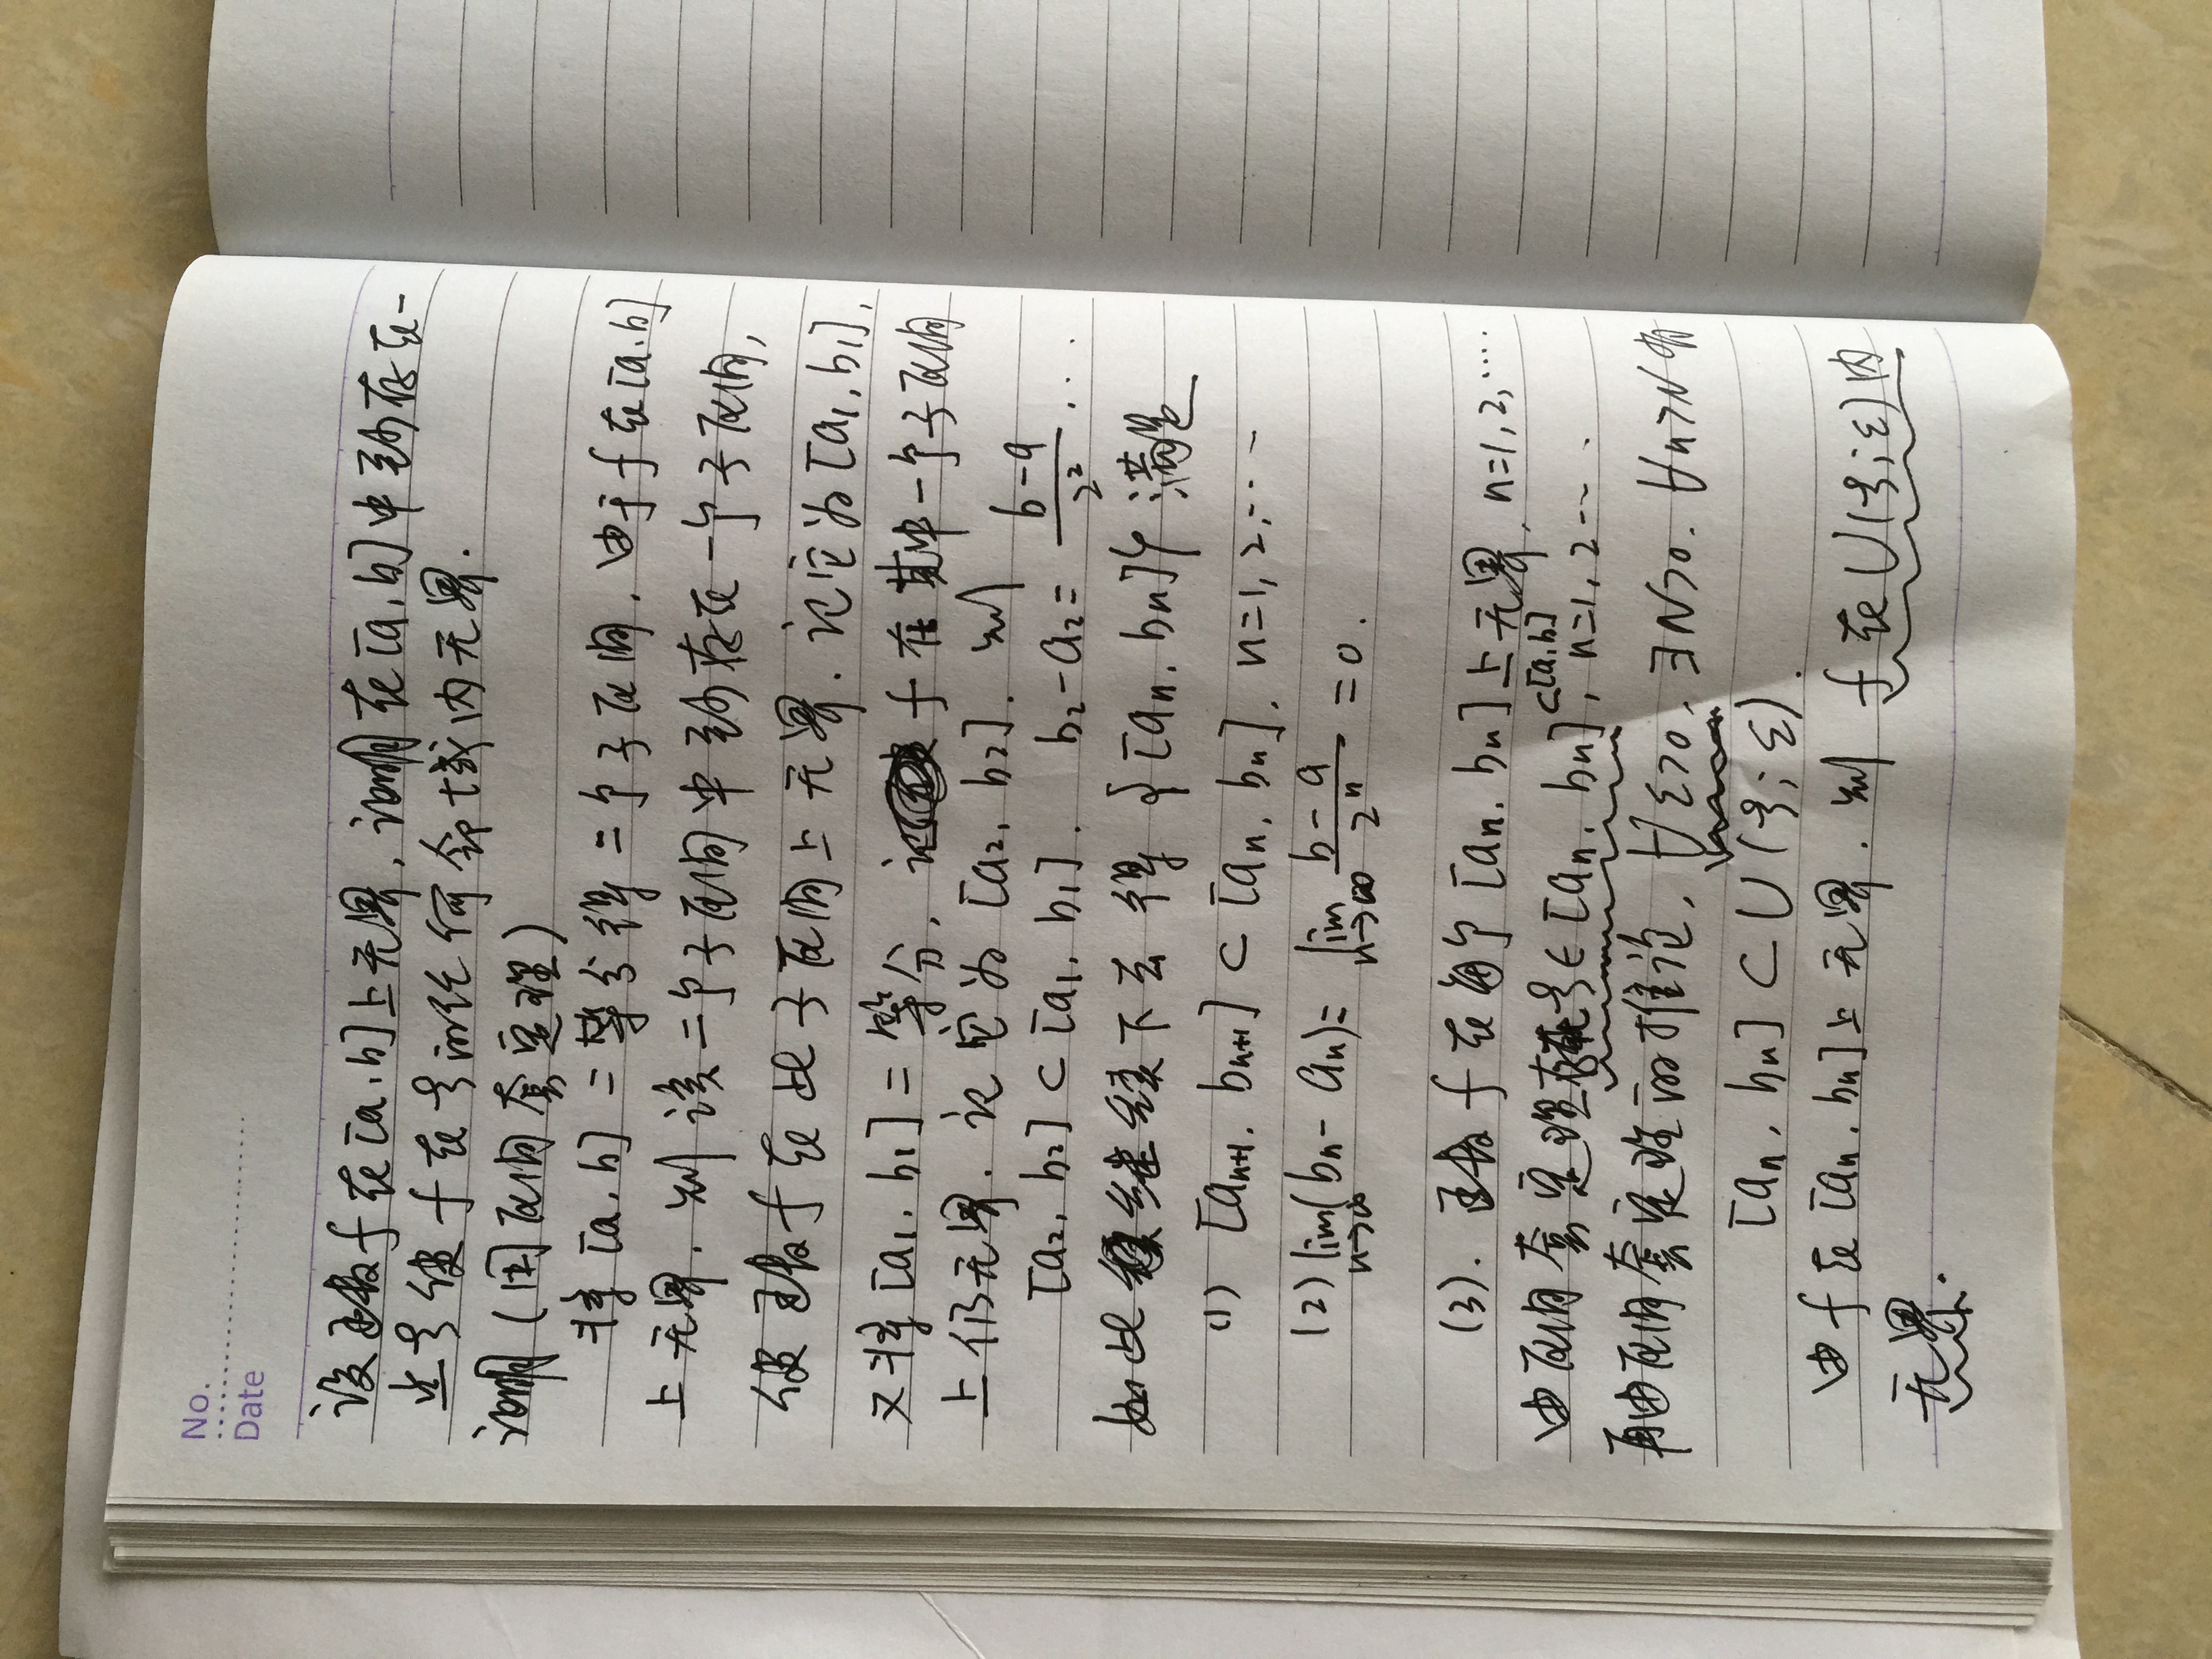 No.
Date
设函数f在[a,b]上无界,证明在[a,b]中至少存在一
点ξ使f在ξ的任何邻域内无界.
证明(用区间套定理)
将[a,b]二等分得二个子区间.由于f在[a,b]
上无界.则该二个子区间中至少存在一个子区间,
使函数f在此子区间上无界.记它为[a₁,b₁],
又将[a₁,b₁]二等分,f在其中一个子区间
上仍无界.记它为[a₂,b₂].则
[a₂,b₂]⊂[a₁,b₁]. b₂-a₂=\frac{b-a}{2²}...
如此继续下去得{[aₙ,bₙ]}满足
(1) [aₙ₊₁,bₙ₊₁]⊂[aₙ,bₙ], n=1,2,...
(2) \lim_{n→∞}(bₙ-aₙ)=\lim_{n→∞}\frac{b-a}{2ⁿ}=0.
(3). 函数f在每个[aₙ,bₙ]上无界, n=1,2,....
由区间套定理存在ξ∈[aₙ,bₙ]⊂[a,b], n=1,2...
再由区间套定理的推论,∀ε>0,∃N>0.∀n>N有
[aₙ,bₙ]⊂U(ξ;ε).
由f在[aₙ,bₙ]上无界.则f在U(ξ;ε)内
无界.